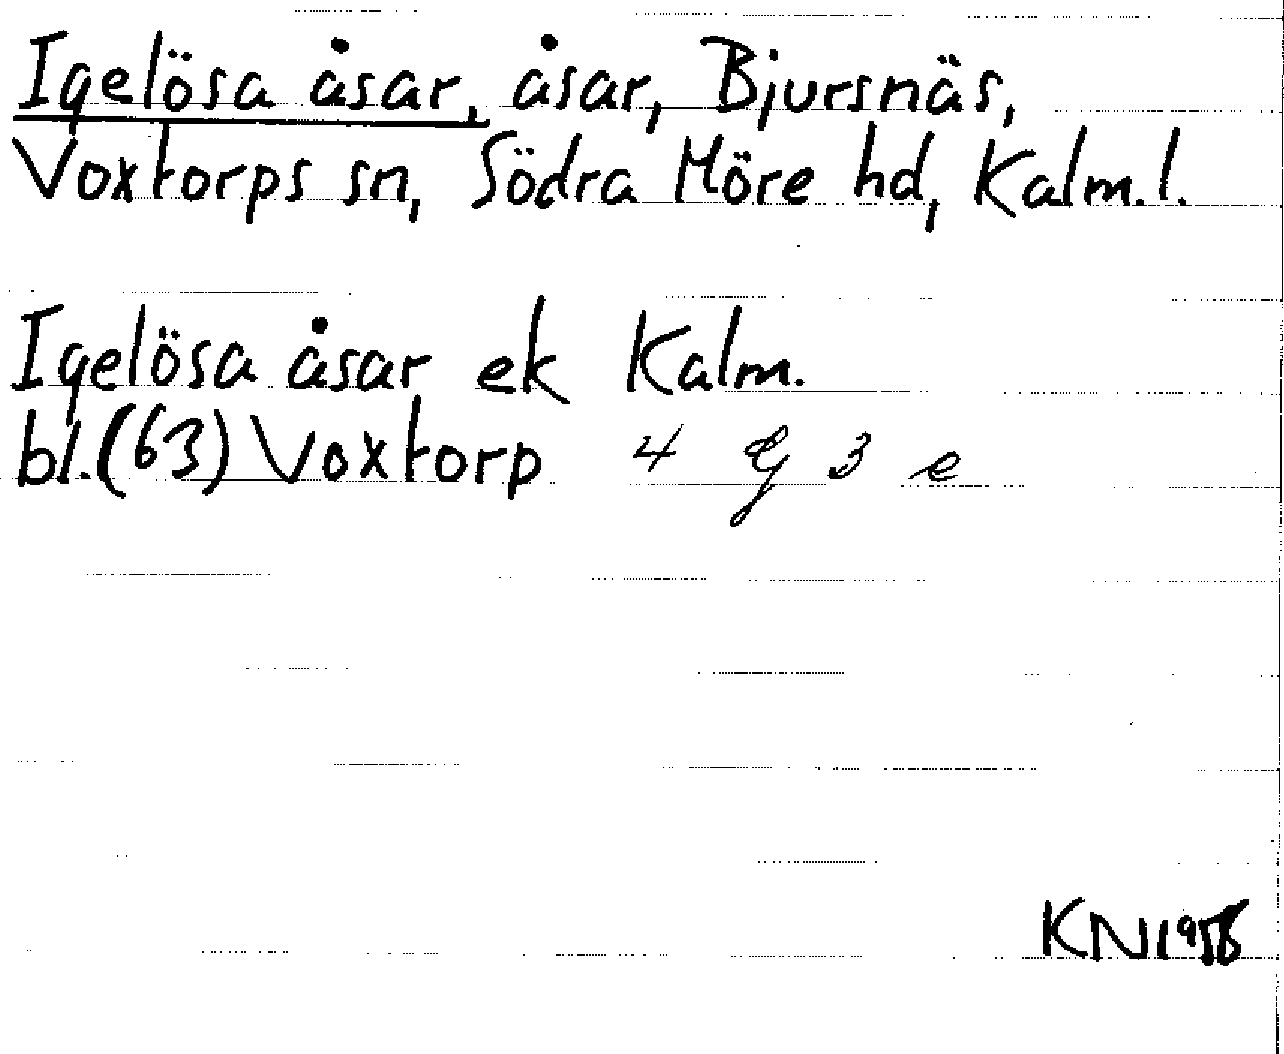 Igelösa åsar, åsar, Bjursnäs,
Voxtorps sn, Södra Möre hd, Kalm.l.
Igelösa åsar ek Kalm.
bl.(63) Voxtorp 4 G 3 e
KN1958